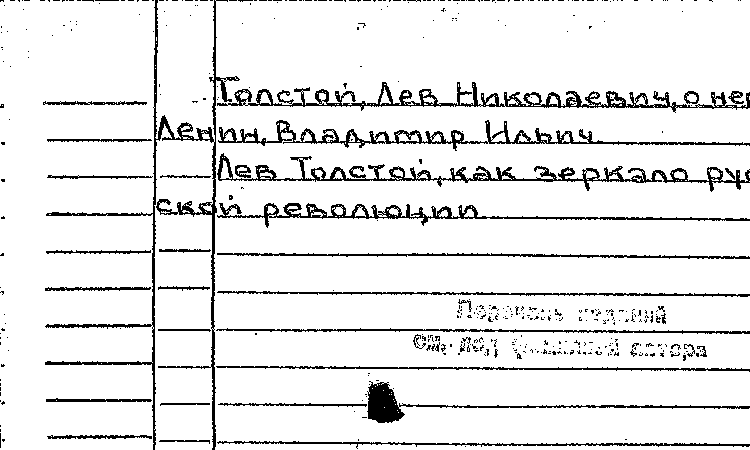 Толстой, Лев Николаевич, о нем
Ленин, Владимир Ильич.
Лев Толстой, как зеркало рус
ской революции
Перечень изданий
см. под фамилией автора